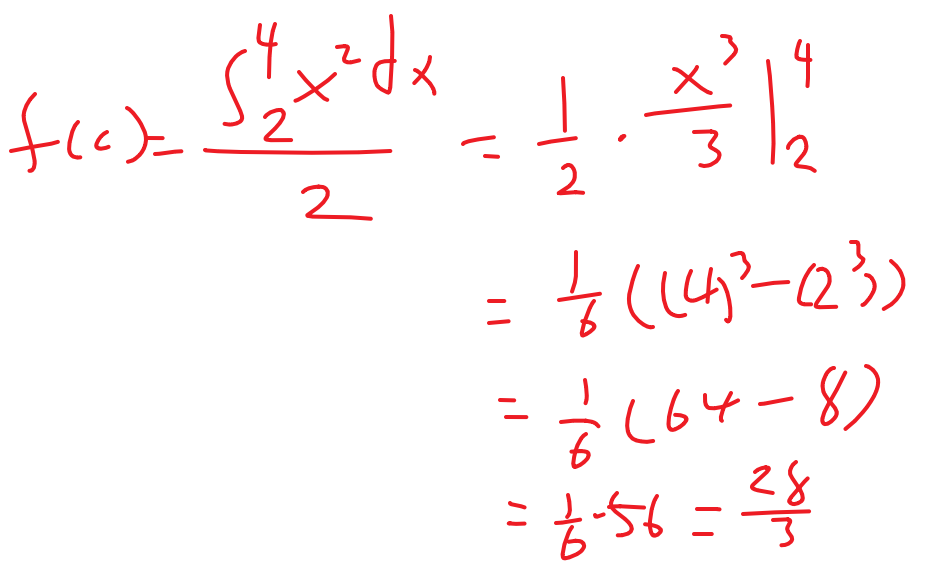 f(c) = \frac{\int_2^4 x^2 dx}{2} = \frac{1}{2} \cdot \frac{x^3}{3} |_2^4
= \frac{1}{6} ((4)^3 - (2^3))
= \frac{1}{6} (64 - 8)
= \frac{1}{6} \cdot 56 = \frac{28}{3}